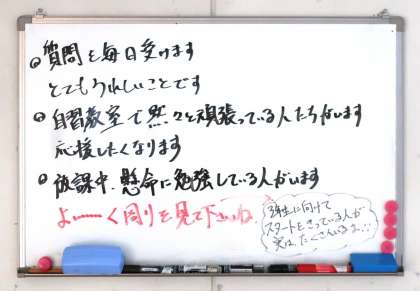 質問を毎日受けます
とてもうれしいことです
自習教室で黙々と頑張っている人たちがいます
応援したくなります
放課中、懸命に勉強している人がいます
よーーく周りを見て下さいね。
スタートをきっている人が
実は、たくさんいるよ…